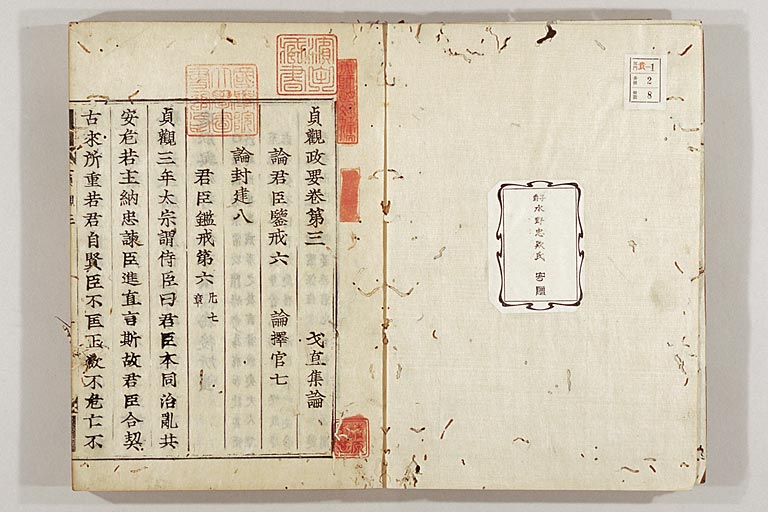 貴-1
2
8
水野忠 氏 寄贈
貞觀政要卷第三 戈直集論
論君臣鑒戒六 論擇官七
論封建八
君臣鑑戒第六 凡七章
貞觀三年太宗謂侍臣曰君臣本同治亂共
安危若主納忠諫臣進直言斯故君臣合契
古來所重若君自賢臣不匡正欲不危亡不